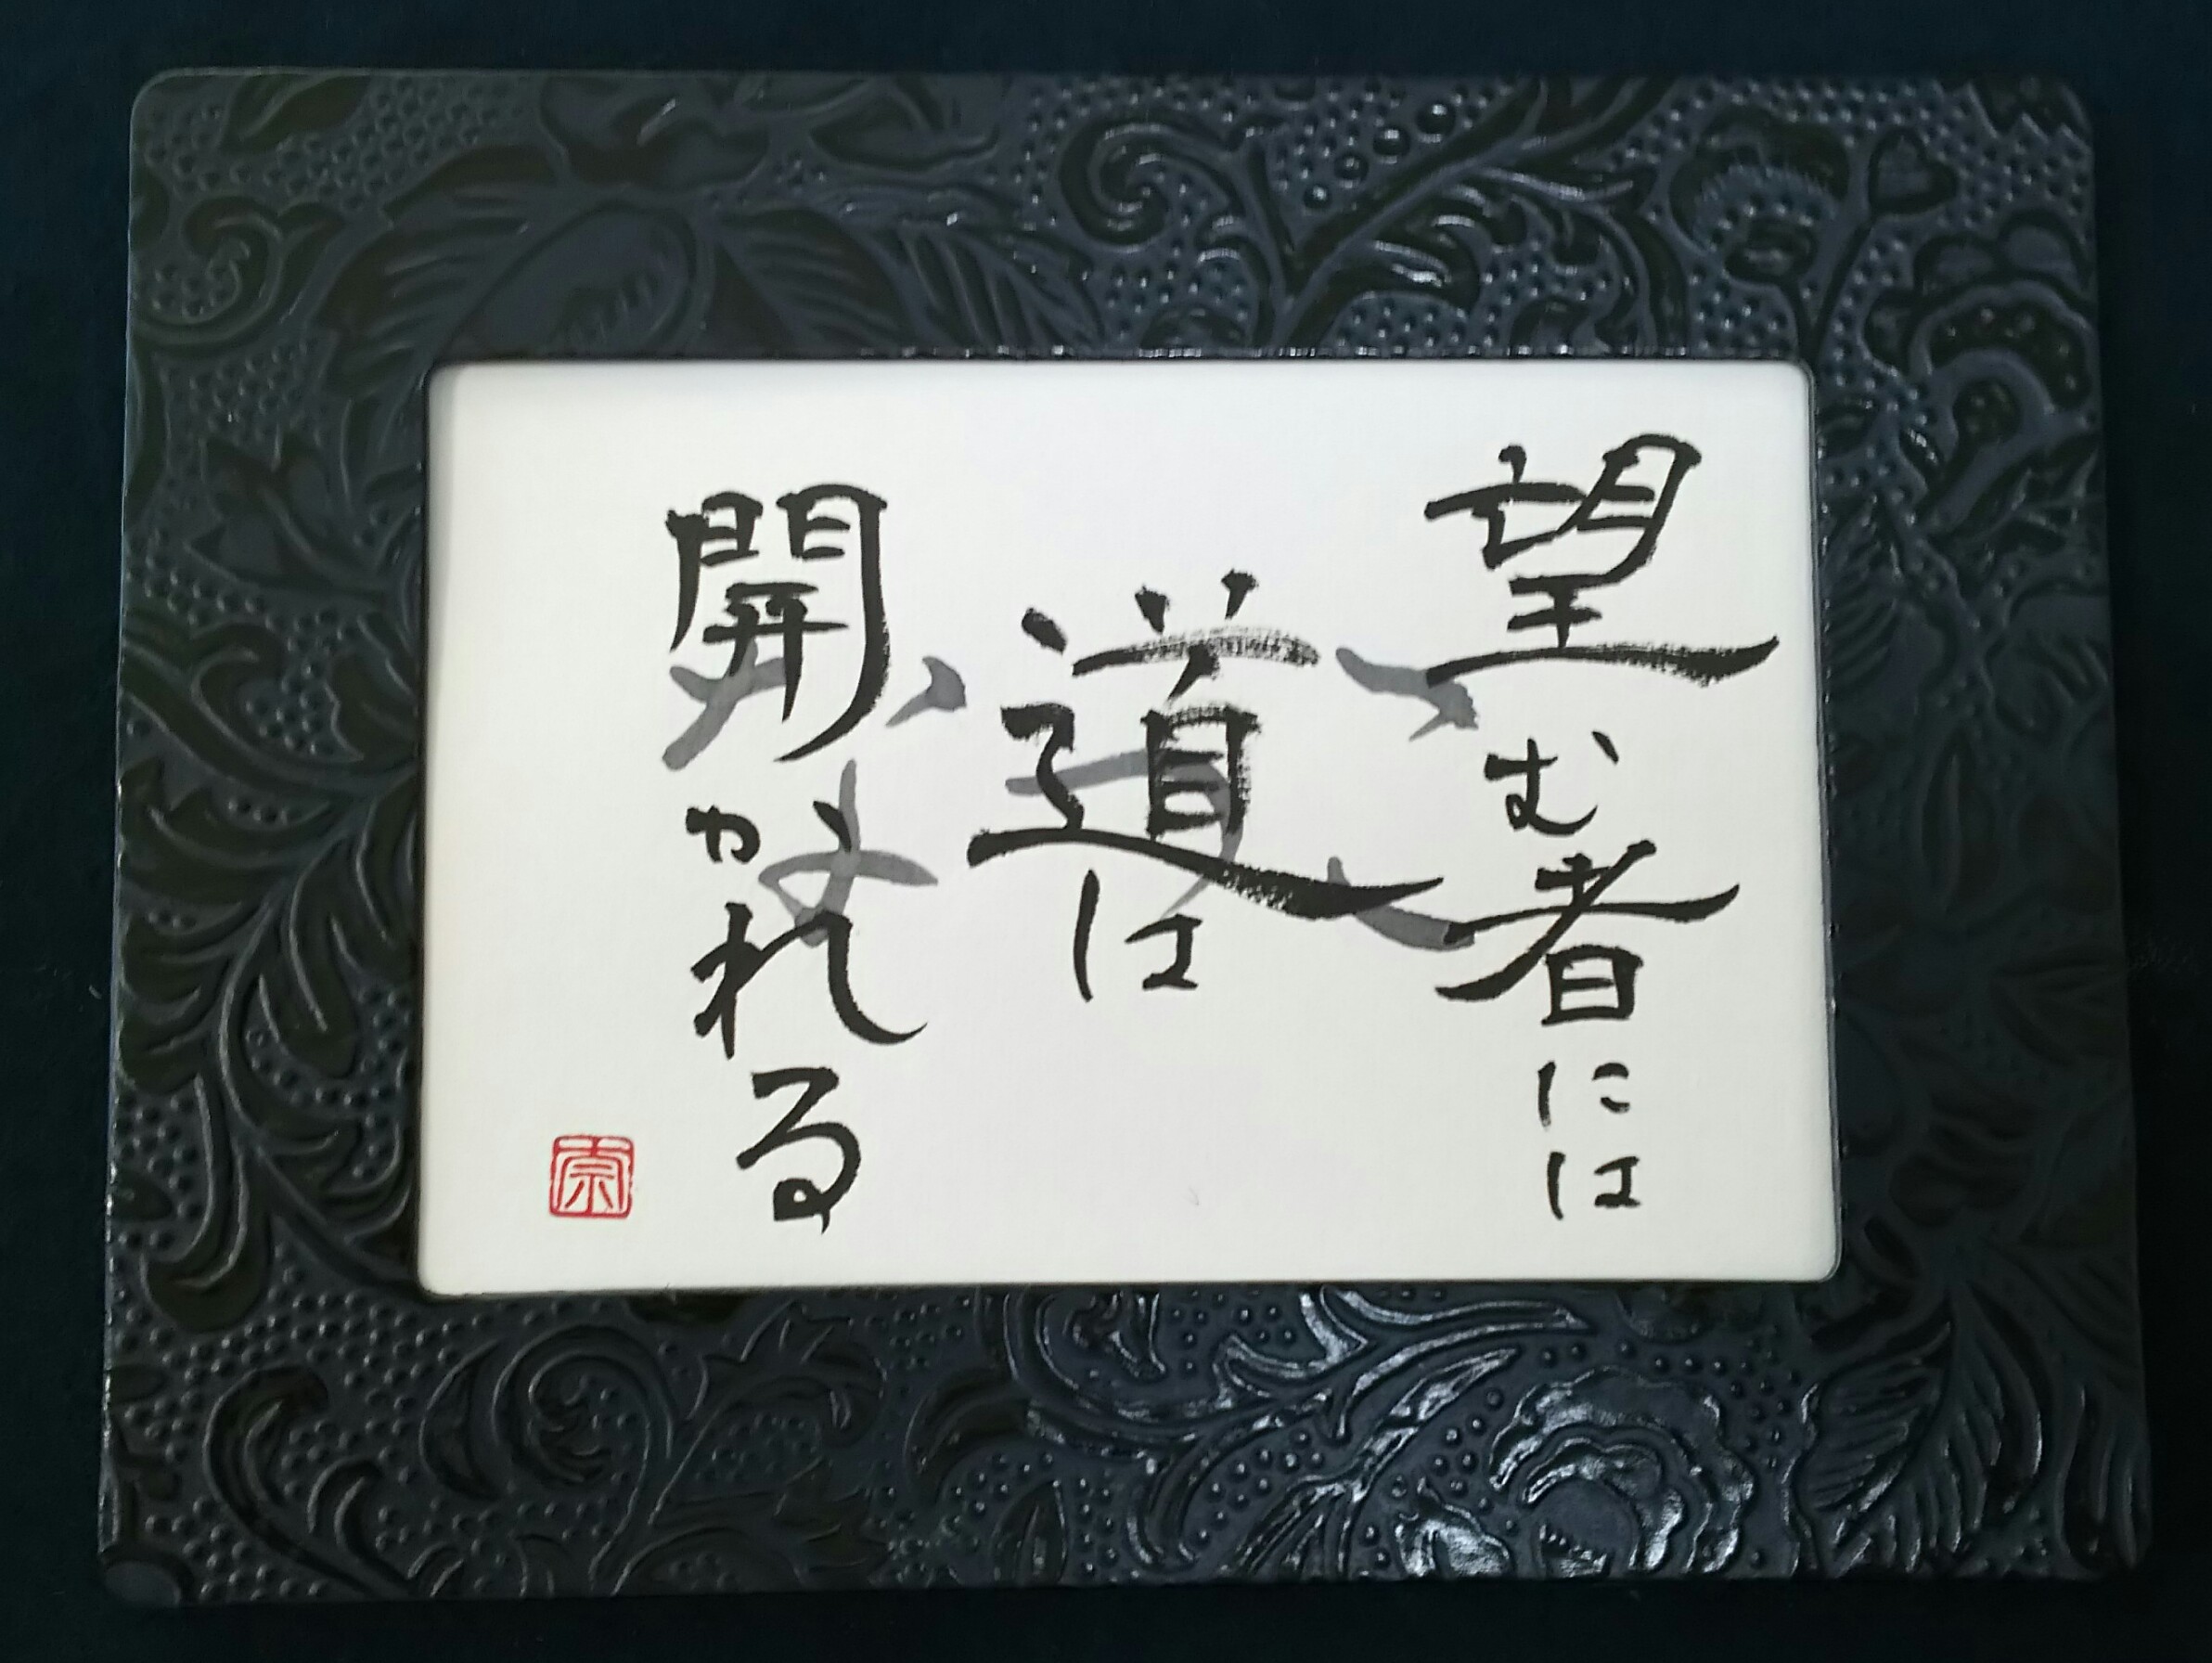 望む者には
道は
開かれる
宗